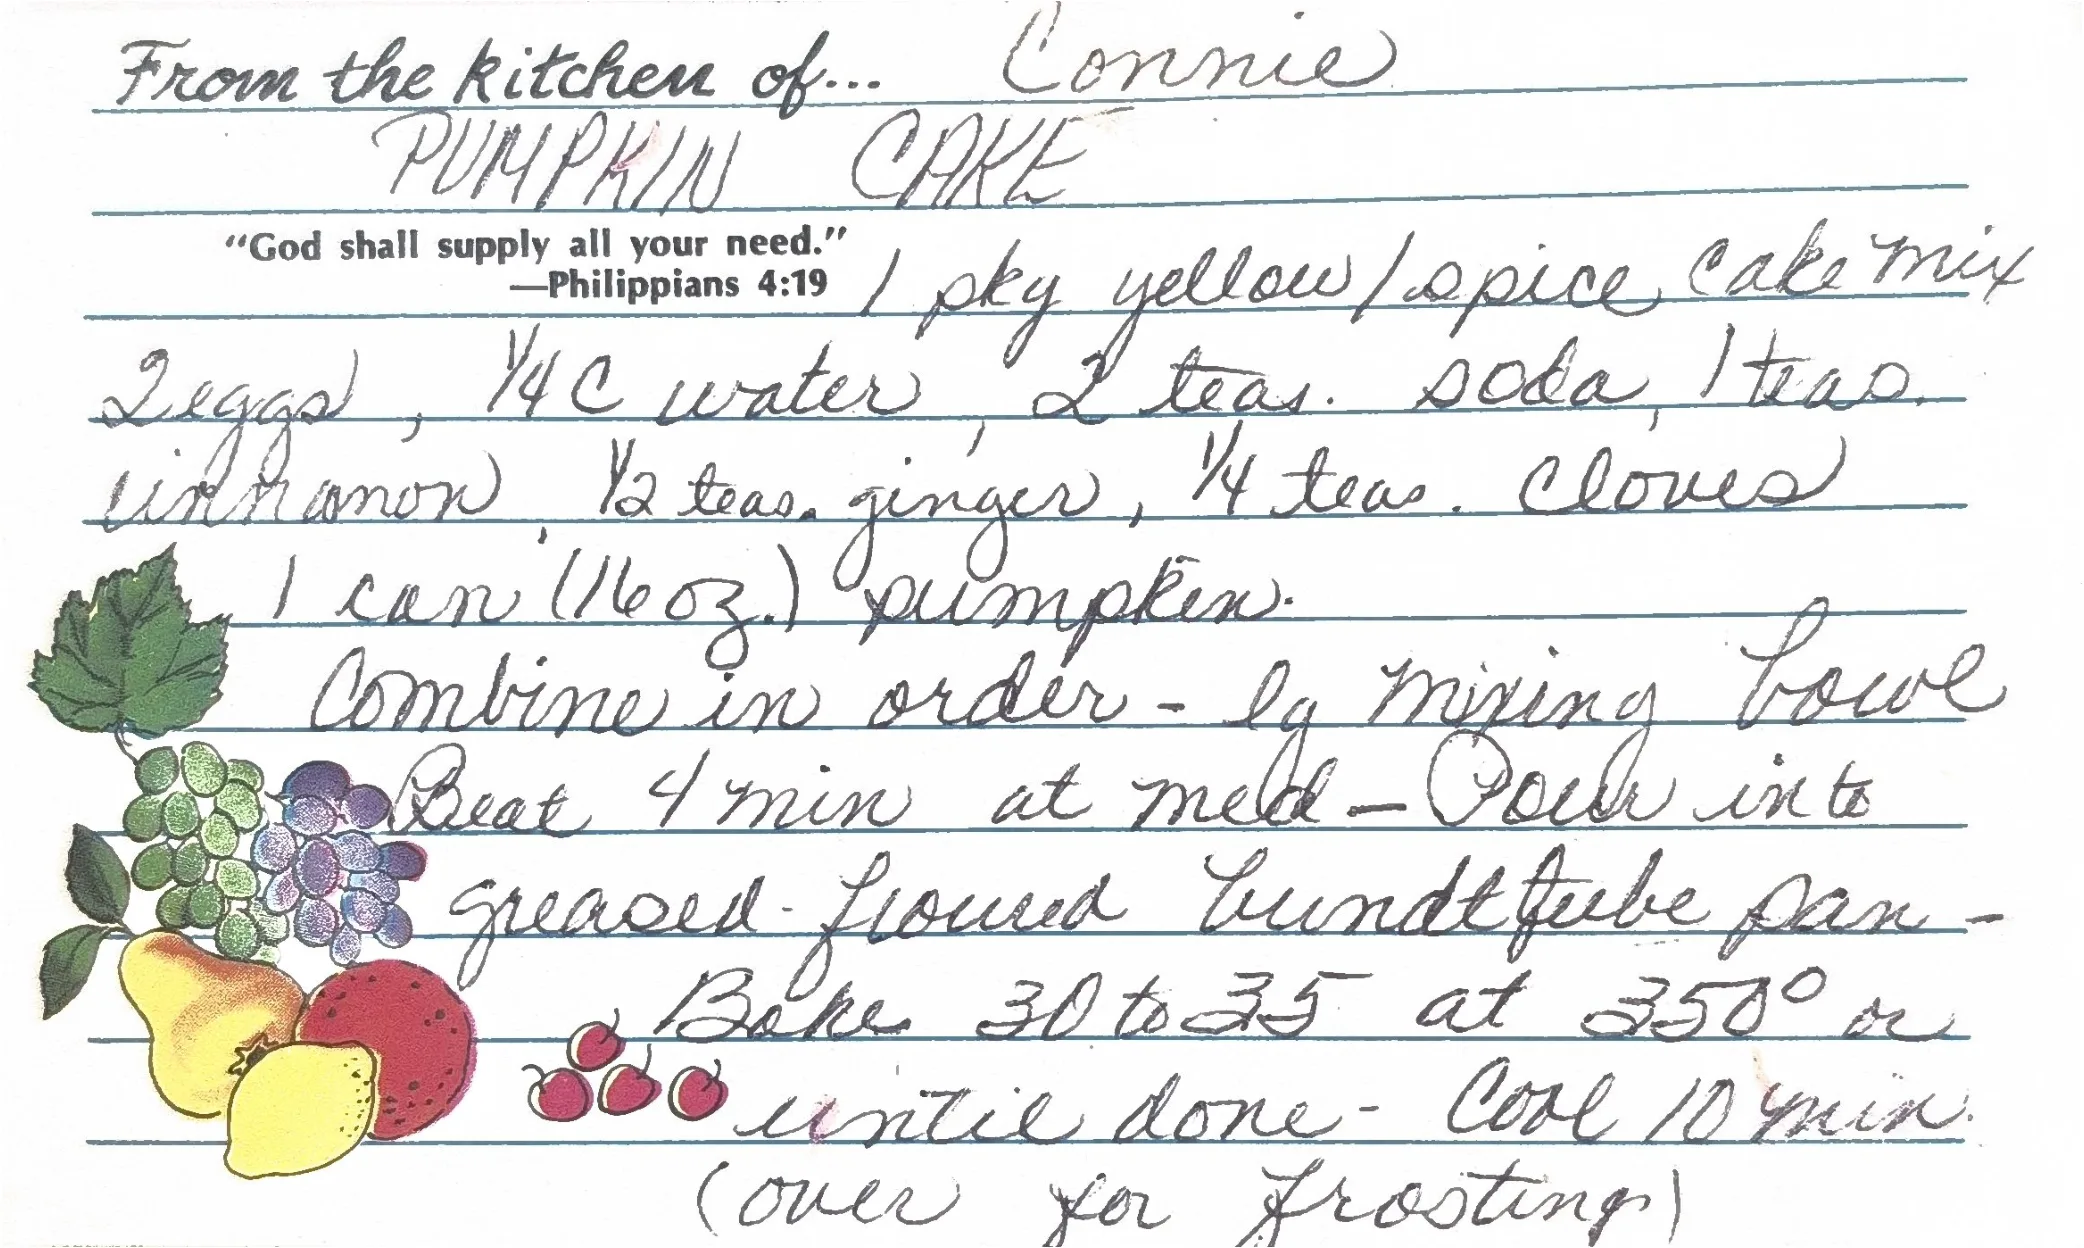 From the kitchen of... Connie
PUMPKIN CAKE
"God shall supply all your need."
—Philippians 4:19
1 pkg yellow/spice cake mix
2 eggs, 1/4 C water, 2 teas. soda, 1 teas.
cinnamon, 1/2 teas. ginger, 1/4 teas. cloves
1 can (16 oz.) pumpkin.
Combine in order - lg mixing bowl
Beat 4 min at med - Pour into
greased - floured bundt tube pan -
Bake 30 to 35 at 350° or
until done - Cool 10 min.
(over for frosting)